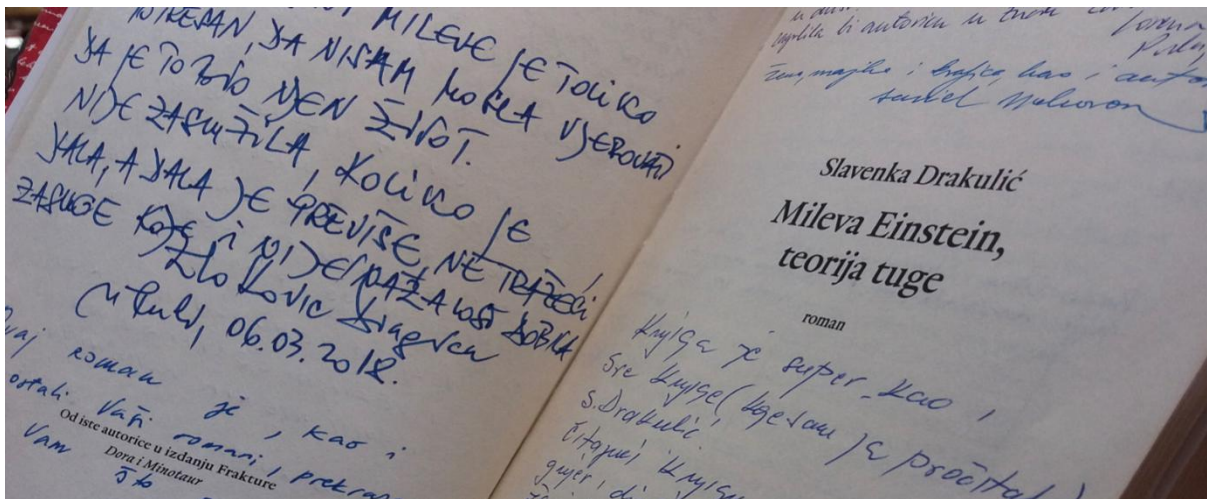 MILEVE JE TOLIKO
POTRESAN, DA NISAM MOGLA VJEROVATI
DA JE TO BIO NJEN ŽIVOT.
NIJE ZASLUŽILA, KOLIKO JE
DALA, A DALA JE PREVIŠE, NE TRAŽEĆI
ZASLUGE KOJE I NIJE NAŽALOST DOBILA
Zlatković Dragica
u Puli, 06.03.2018.
Ovaj roman je, kao i
ostali Vaši romani, prekra
Od iste autorice u izdanju Frakture
Dora i Minotaur
Vam što
bi autoricu u
žena, majka i kao i autor
Slavenka Drakulić
Mileva Einstein,
teorija tuge
roman
Knjiga je super kao i
sve knjige (koje sam ja pročitala)
S. Drakulić.
Čitajući knjigu